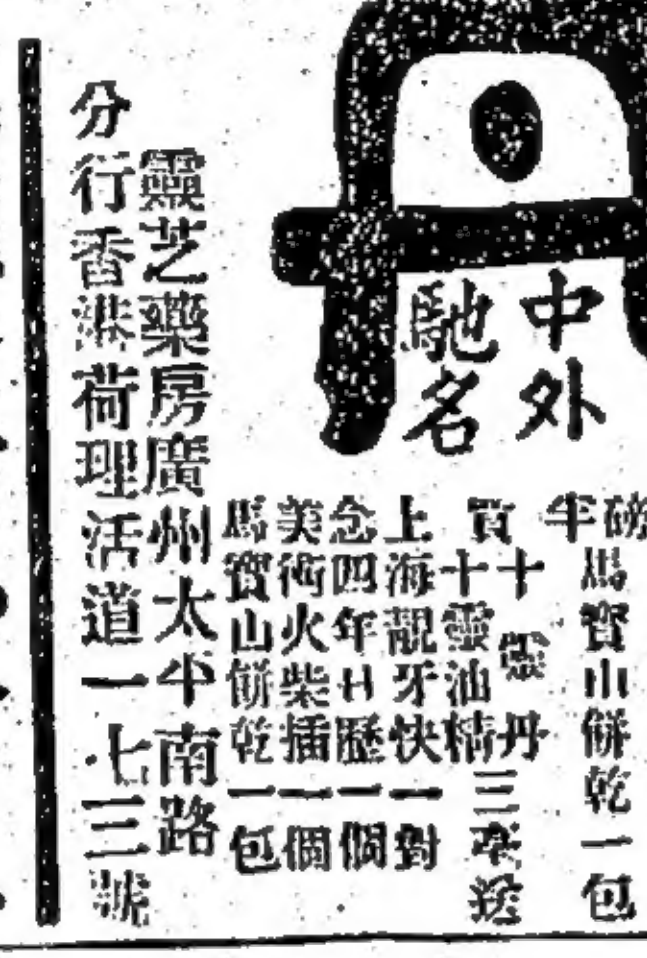 丹
中外
馳名
半磅
馬寶山餅乾一包
買
十靈丹
十靈油精
三 送
上海靚牙快一對
念四年日歷一個
美術火柴插一個
馬寶山餅乾一包
靈芝藥房廣州太平南路
分行香港荷理活道一七三號